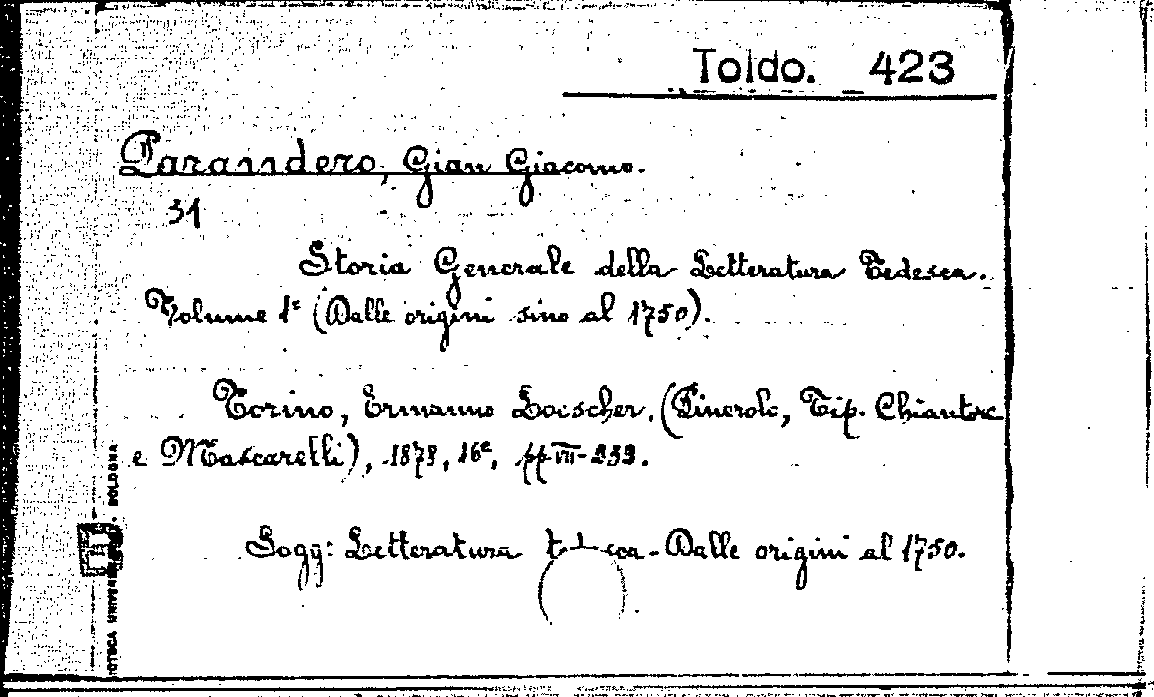 Toldo. 423
Parandero, Gian Giacomo.
31
Storia Generale della Letteratura Tedesca.
Volume 1° (Dalle origini sino al 1750).
Torino, Ermanno Loescher, (Pinerolo, Tip. Chiantore
e Mascarelli), 16°, pp VII-
Sogg: Letteratura - Dalle origini al 1750.
BOLOGNA